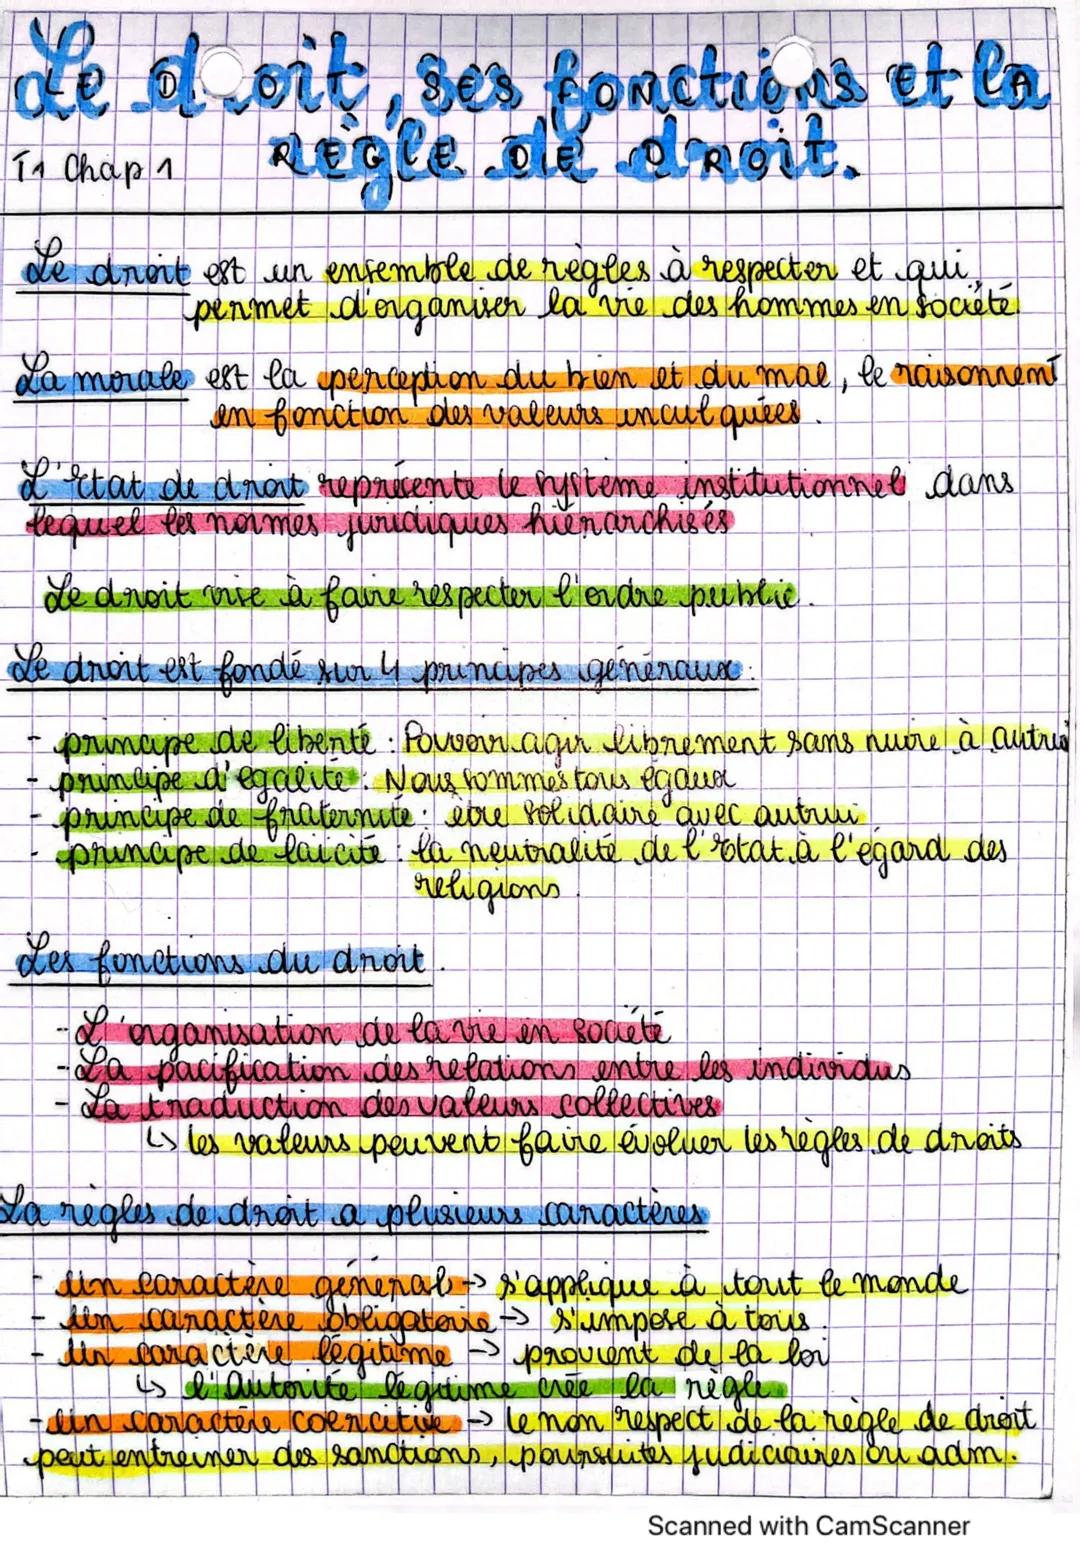 Le droit, ses fonctions et la
T1 Chap 1 règle de droit.
Le droit est un ensemble de règles à respecter et qui
permet d'organiser la vie des hommes en société.
La morale est la perception du bien et du mal, le raisonnent
en fonction des valeurs inculquées.
L'Etat de droit représente le système institutionnel dans
lequel les normes juridiques hiérarchisés
Le droit vise à faire respecter l'ordre public.
Le droit est fondé sur 4 principes généraux :
- principe de liberté : Pouvoir agir librement sans nuire à autrui
- principe d'égalité : Nous sommes tous égaux
- principe de fraternité : être solidaire avec autrui
- principe de laïcité : la neutralité de l'Etat à l'égard des
religions.
Les fonctions du droit.
- L'organisation de la vie en société
- La pacification des relations entre les individus
- La traduction des valeurs collectives
↳ les valeurs peuvent faire évoluer les règles de droits
La règles de droit a plusieurs caractères
- Un caractère général → s'applique à tout le monde
- Un caractère obligatoire → s'impose à tous.
- Un caractère légitime → provient de la loi
↳ l'autorité légitime crée la règle
- Un caractère coercitive → le non respect de la règle de droit
peut entreiner des sanctions, poursuites judiciaires ou adm.
Scanned with CamScanner